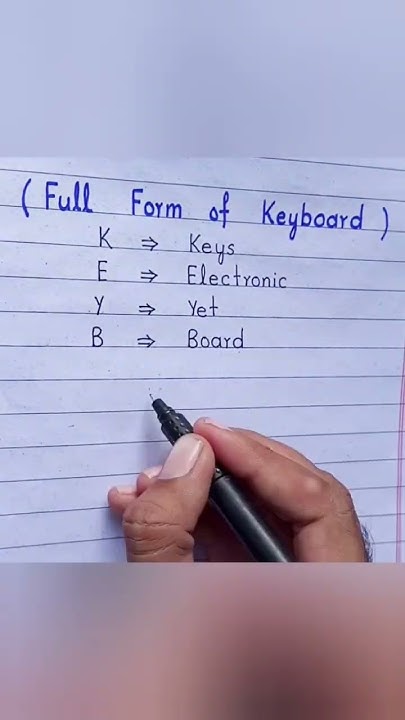 ( Full Form of Keyboard )
K ⇒ Keys
E ⇒ Electronic
Y ⇒ Yet
B ⇒ Board